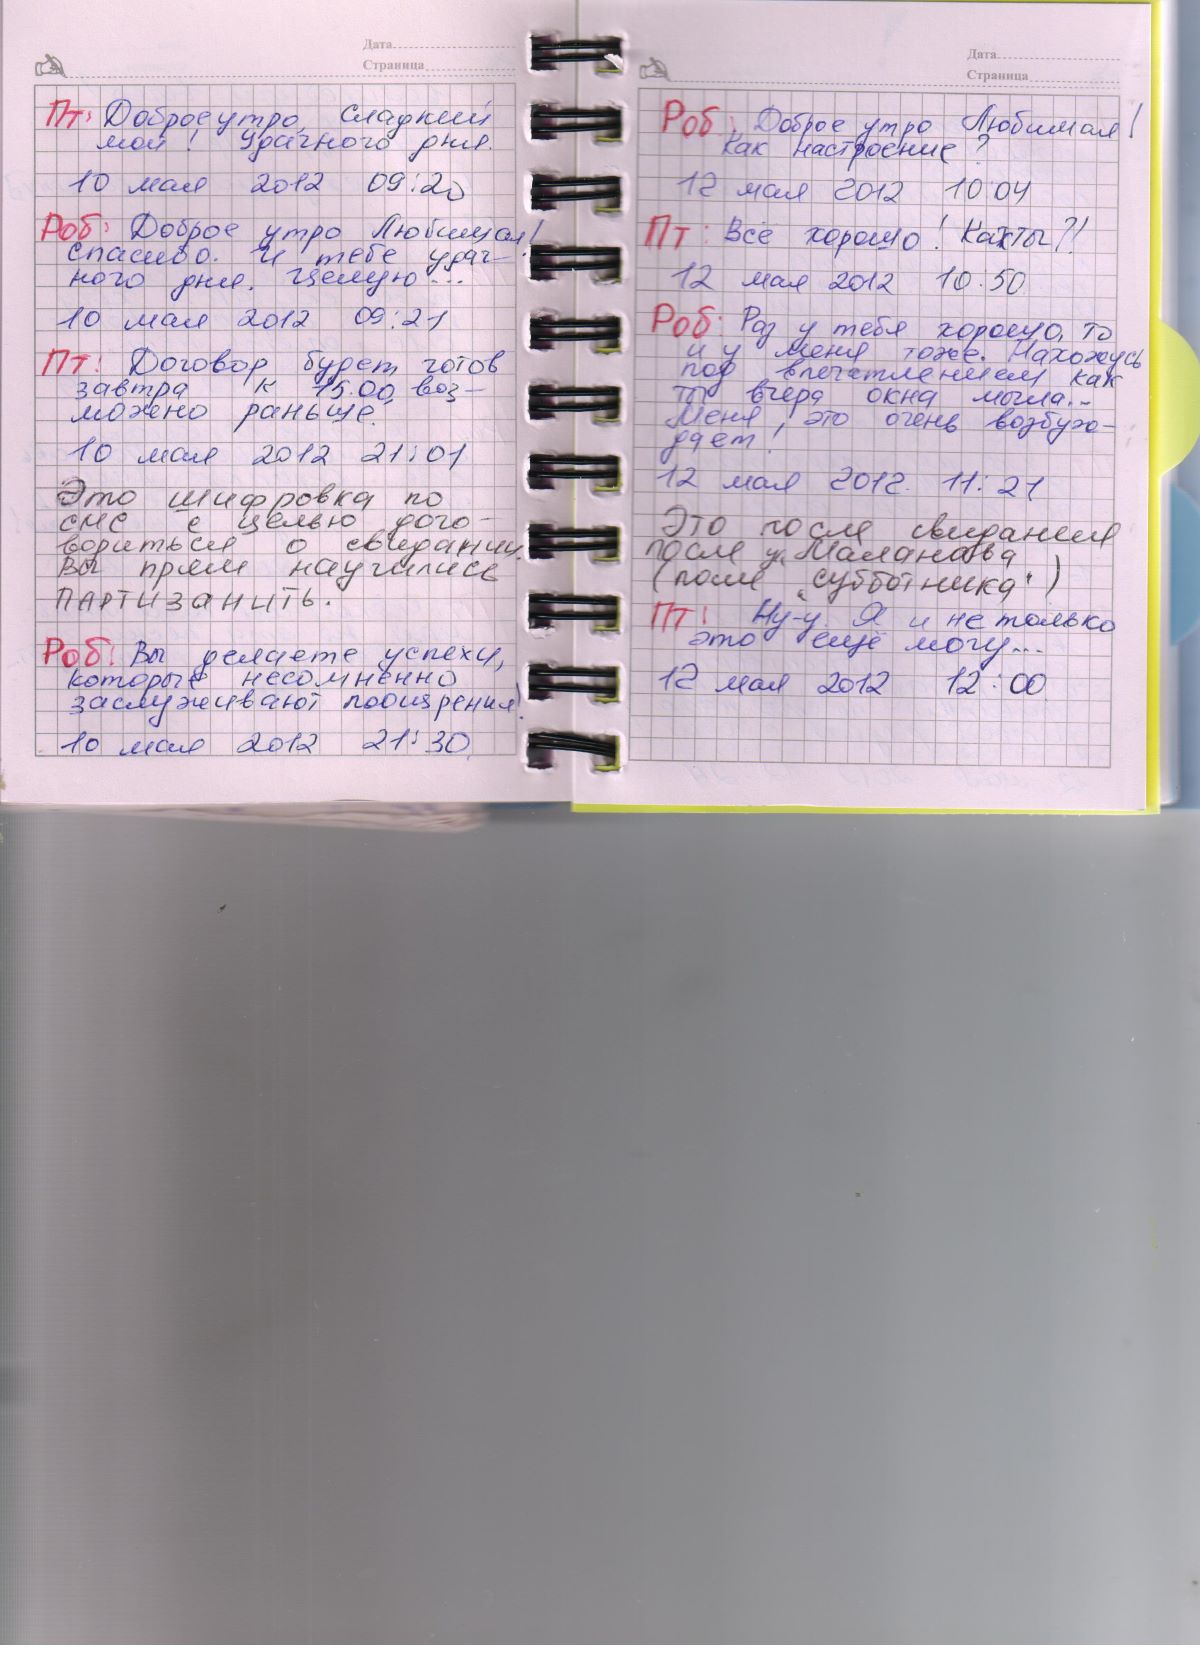 Дата
Страница
Пт: Доброе утро, сладкий
мой! Удачного дня.
10 мая 2012 09:20
Роб: Доброе утро Любимая!
Спасибо. И тебе удач-
ного дня. Целую...
10 мая 2012 09:21
Пт: Договор будет готов
завтра к 15.00, воз-
можено раньше.
10 мая 2012 21:01
Это шифровка по
смс с целью дого-
вориться о свидании.
Вы прям научились
ПАРТИЗАНИТЬ.
Роб: Вы делаете успехи,
которые несомненно
заслуживают поощрения!
10 мая 2012 21:30
Дата
Страница
Роб: Доброе утро Любимая!
Как настроение?
12 мая 2012 10:04
Пт: Всё хорошо! Как ты?!
12 мая 2012 10:50
Роб: Раз у тебя хорошо, то
и у меня тоже. Нахожусь
под впечатлением как
ты вчера окна мыла...
Меня это очень возбуж-
дает!
12 мая 2012. 11:21
Это после свидания
после у Маланова
(после "субботника")
Пт: Ну-у. Я и не только
это ещё могу...
12 мая 2012 12:00